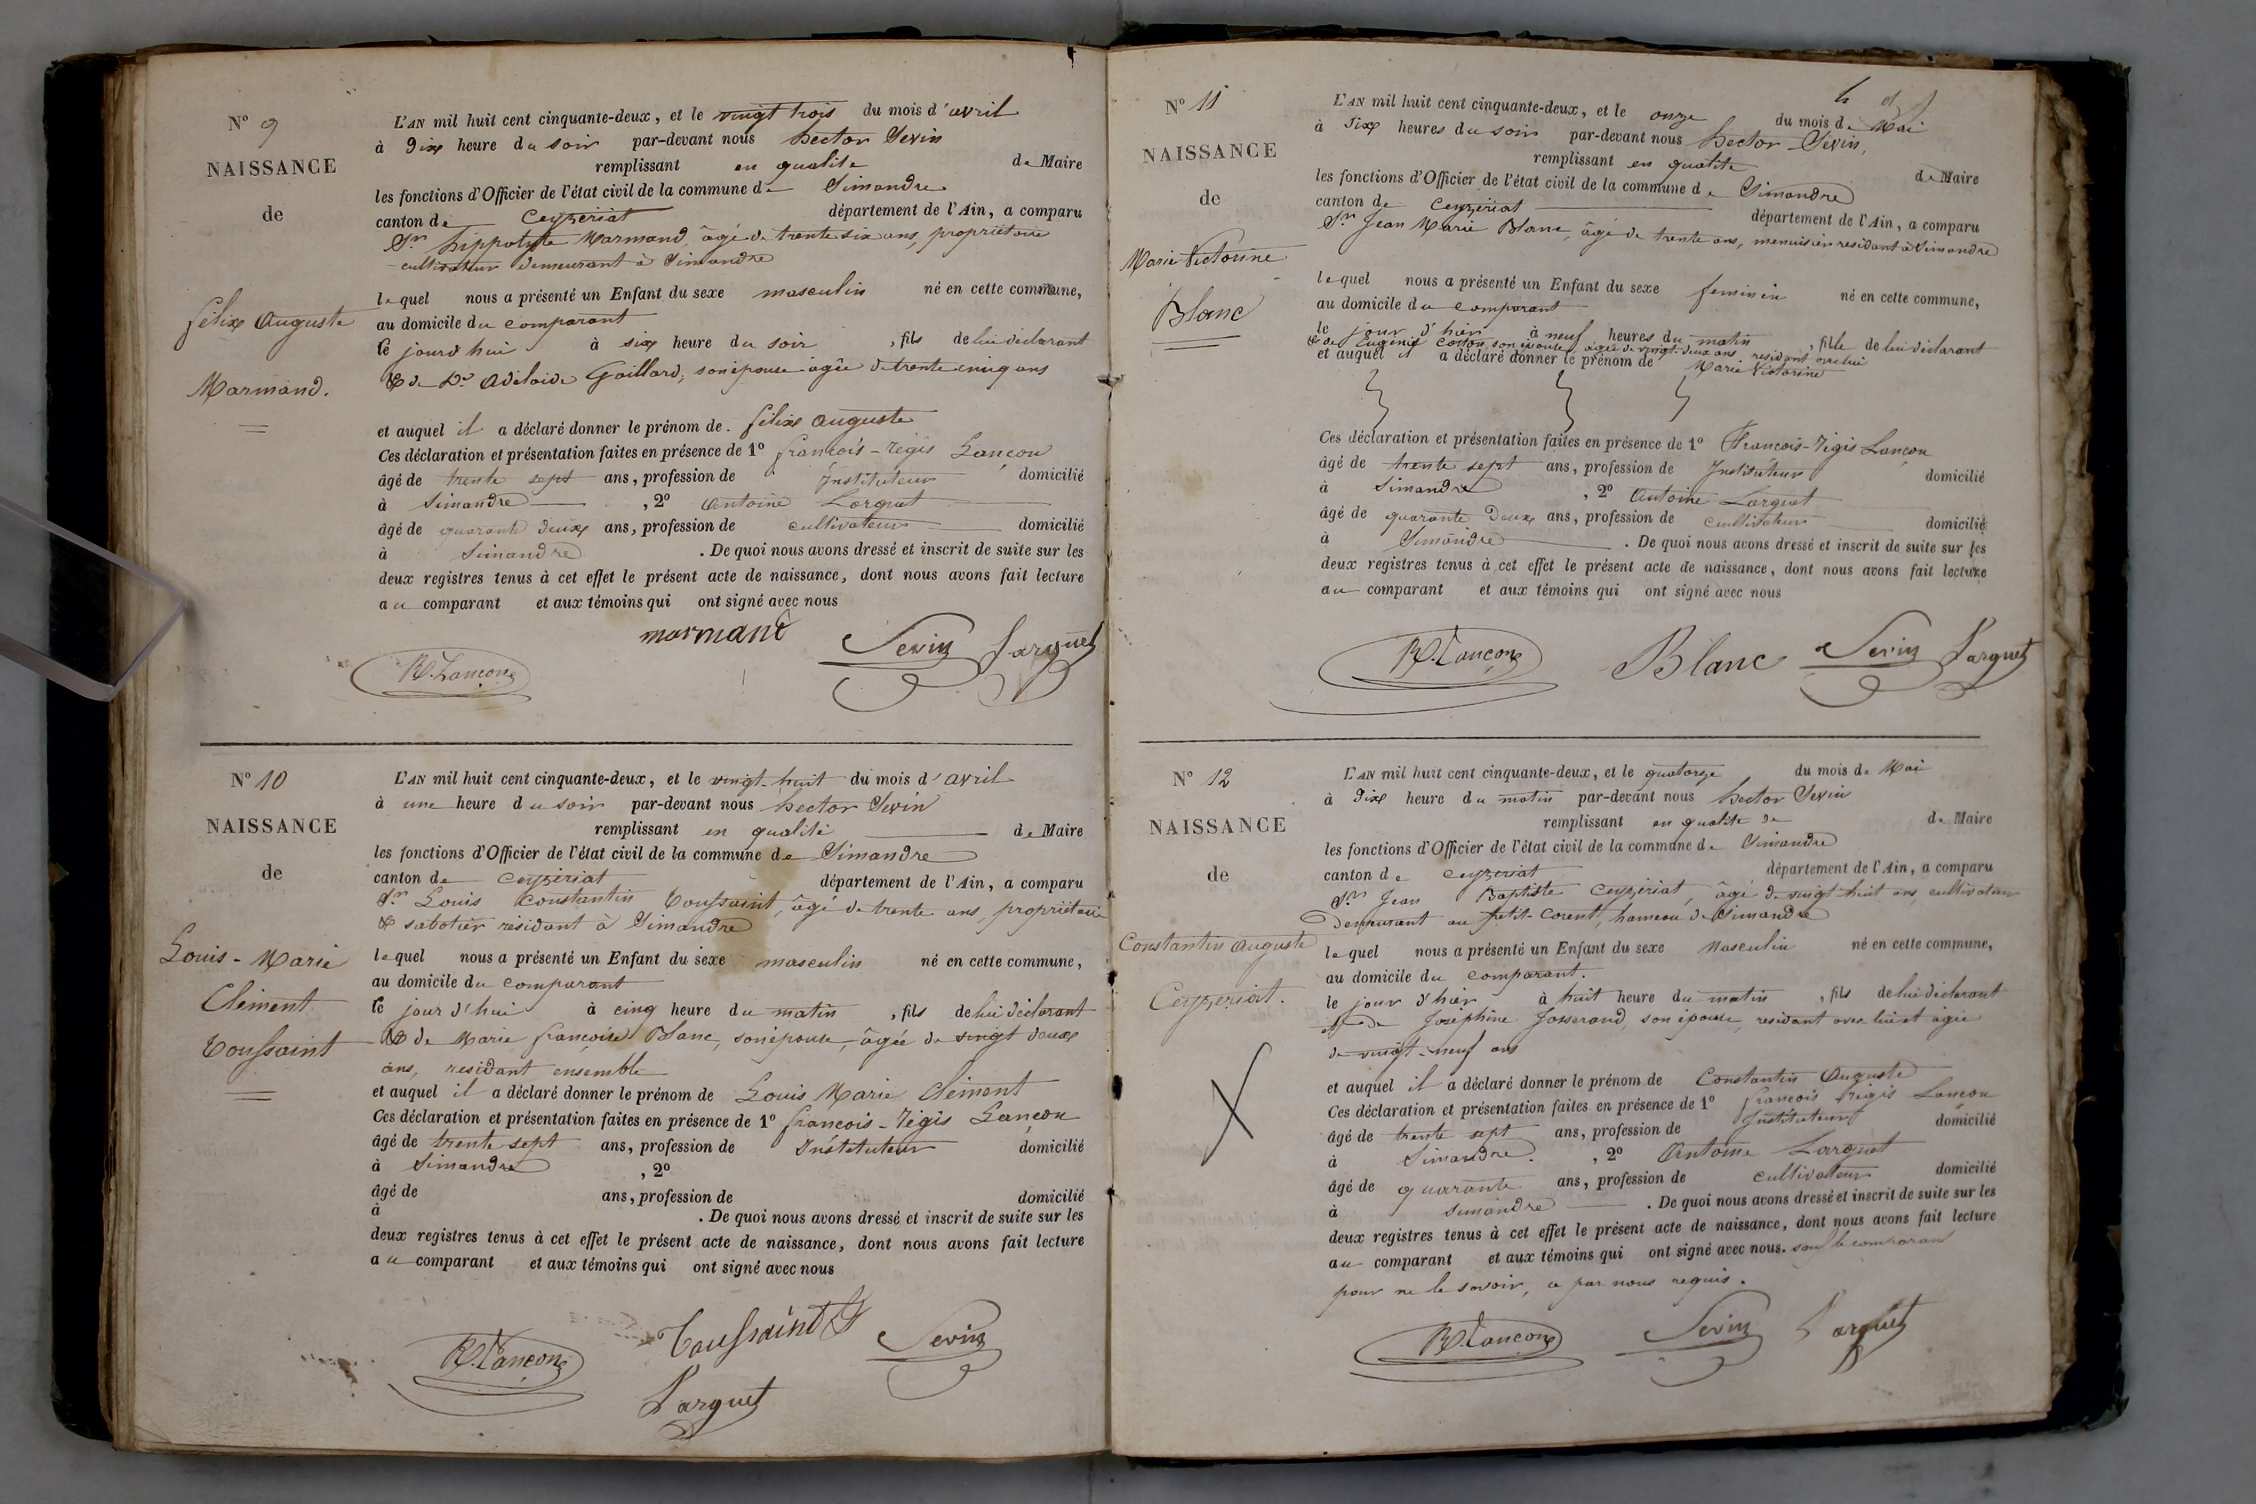 N° 9
NAISSANCE
de
félix Auguste
Marmand.
L'AN mil huit cent cinquante-deux, et le vingt trois du mois d'avril
à dix heure du soir par-devant nous hector Sevin
remplissant en qualité de Maire
les fonctions d'Officier de l'état civil de la commune de Simandre
canton de Ceyzeriat département de l'Ain, a comparu
Sr hippolyte Marmand, âgé de trente six ans, propriétaire
cultivateur demeurant à Simandre
lequel nous a présenté un Enfant du sexe masculin né en cette commune,
au domicile du comparant
le jourd'hui à six heure du soir, fils de lui déclarant
& de De Adelaide Gaillard, son épouse âgée de trente cinq ans
et auquel il a déclaré donner le prénom de félix auguste
Ces déclaration et présentation faites en présence de 1° francois-régis Lançon
âgé de trente sept ans, profession de Instituteur domicilié
à Simandre, 2° Antoine Larguet
âgé de quarante deux ans, profession de cultivateur domicilié
à Simandre. De quoi nous avons dressé et inscrit de suite sur les
deux registres tenus à cet effet le présent acte de naissance, dont nous avons fait lecture
au comparant et aux témoins qui ont signé avec nous
marmand Sevin Larguet
R. Lançon
N° 10
NAISSANCE
de
Louis-Marie
Clément
Toussaint
L'AN mil huit cent cinquante-deux, et le vingt-huit du mois d'avril
à une heure du soir par-devant nous hector Sevin
remplissant en qualité de Maire
les fonctions d'Officier de l'état civil de la commune de Simandre
canton de Ceyzériat département de l'Ain, a comparu
Sr Louis Constantin Toussaint, âgé de trente ans, propriétaire
& sabotier résidant à Simandre
lequel nous a présenté un Enfant du sexe masculin né en cette commune,
au domicile du comparant
le jour d'hui à cinq heure du matin, fils de lui déclarant
& de Marie françoise Blanc, son épouse, âgée de vingt deux
ans, residant ensemble
et auquel il a déclaré donner le prénom de Louis Marie Clément
Ces déclaration et présentation faites en présence de 1° francois-régis Lançon
âgé de trente sept ans, profession de Instituteur domicilié
à Simandre, 2°
âgé de ans, profession de domicilié
à . De quoi nous avons dressé et inscrit de suite sur les
deux registres tenus à cet effet le présent acte de naissance, dont nous avons fait lecture
au comparant et aux témoins qui ont signé avec nous
R. Lançon Toussaint Sevin
Larguet
N° 11
NAISSANCE
de
Marie Victorine
Blanc
L'AN mil huit cent cinquante-deux, et le onze du mois de Mai
à Six heures du soir par-devant nous hector Sevin,
remplissant en qualité de Maire
les fonctions d'Officier de l'état civil de la commune de Simandre
canton de Ceyzériat département de l'Ain, a comparu
Sr Jean Marie Blanc, âgé de trente ans, menuisier residant à Simandre
lequel nous a présenté un Enfant du sexe feminin né en cette commune,
au domicile du comparant
le jour d'hier à neuf heures du matin, fille de lui déclarant
& de Eugénie son épouse âgée de vingt-deux ans residant avec lui
et auquel il a déclaré donner le prénom de Marie Victorine
Ces déclaration et présentation faites en présence de 1° Francois-régis Lançon
âgé de trente sept ans, profession de Instituteur domicilié
à Simandre, 2° Antoine Larguet
âgé de quarante deux ans, profession de cultivateur domicilié
à Simandre. De quoi nous avons dressé et inscrit de suite sur les
deux registres tenus à cet effet le présent acte de naissance, dont nous avons fait lecture
au comparant et aux témoins qui ont signé avec nous
R. Lançon Blanc Sevin Larguet
N° 12
NAISSANCE
de
Constantin Auguste
Ceyzeriat.
L'AN mil huit cent cinquante-deux, et le quatorze du mois de Mai
à dix heure du matin par-devant nous hector Sevin
remplissant en qualité de de Maire
les fonctions d'Officier de l'état civil de la commune de Simandre
canton de Ceyzeriat département de l'Ain, a comparu
Sr Jean Baptiste Ceyzériat, âgé de vingt huit ans, cultivateur
demeurant au petit-Corent, hameau de Simandre
lequel nous a présenté un Enfant du sexe Masculin né en cette commune,
au domicile du comparant.
le jour d'hier à huit heure du matin, fils de lui déclarant
et de Joséphine Josserand, son épouse, residant avec lui et agée
de vingt-neuf ans
et auquel il a déclaré donner le prénom de Constantin Auguste
Ces déclaration et présentation faites en présence de 1° francois régis Lançon
âgé de trente sept ans, profession de Instituteur domicilié
à Simandre., 2° Antoine Larguet
âgé de quarante ans, profession de cultivateur domicilié
à Simandre. De quoi nous avons dressé et inscrit de suite sur les
deux registres tenus à cet effet le présent acte de naissance, dont nous avons fait lecture
au comparant et aux témoins qui ont signé avec nous. sauf le comparant
pour ne le savoir, a par nous requis.
R. Lançon Sevin Larguet